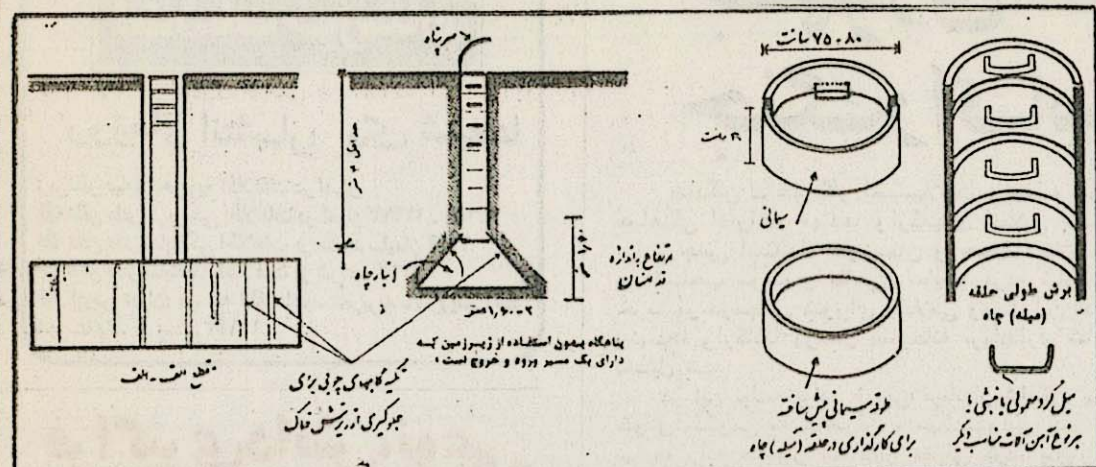 سرپناه
حداقل ۳ متر
انبار چاه
۱٫۶۰ متر
ارتفاع باندازه
قد انسان
۲-۱٫۶۰ متر
پناهگاه بدون استفاده از زیرزمین که
دارای یک مسیر ورود و خروج است .
مقطع الف - الف
تکیه گاههای چوبی برای
جلوگیری از ریزش خاک
۷۵-۸۰ سانت
سانت
سیمانی
طوقه سیمانی پیش ساخته
برای کارگذاری در حلقه (میله) چاه
برش طولی حلقه
(میله) چاه
میل گرد معمولی یا نبشی یا
هر نوع آهن آلات مناسب دیگر